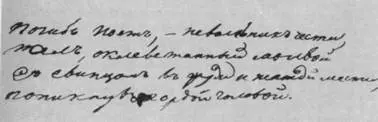 Погибъ Поэтъ, – невольникъ чести,
Палъ, оклеветанный молвой
Съ свинцомъ въ груди и жаждой мести,
поникнувъ гордой головой.